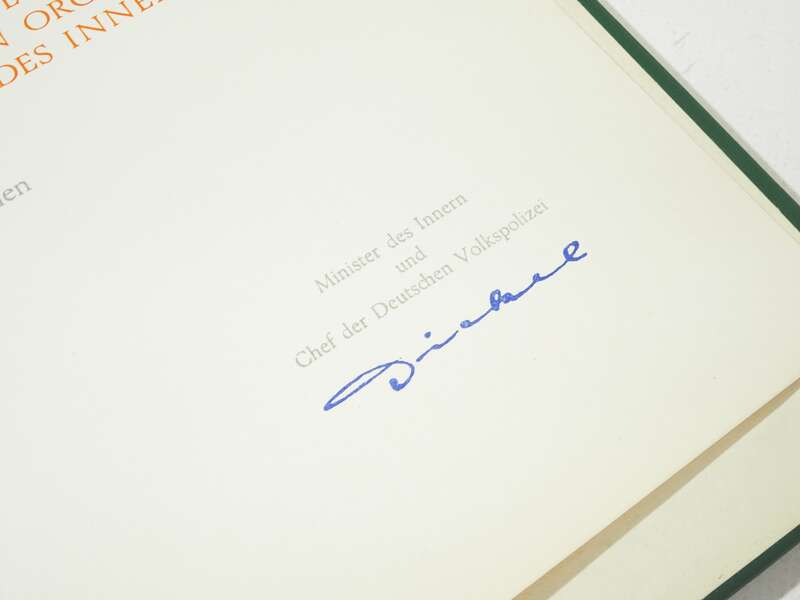 N ORG
DES INNE
en
Minister des Innern
und
Chef der Deutschen Volkspolizei
Dickel